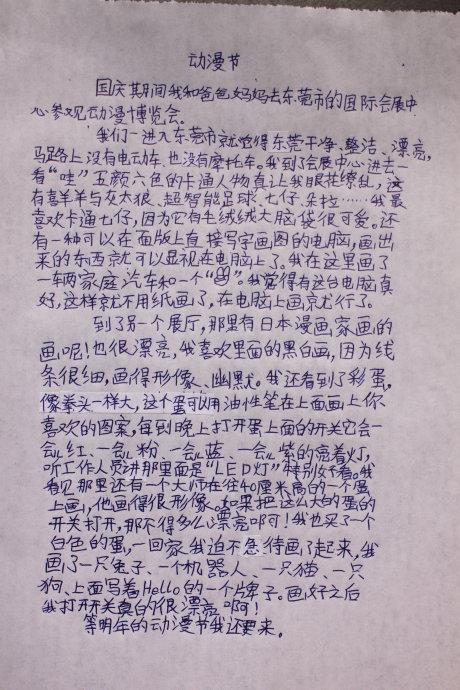 动漫节
国庆期间我和爸爸妈妈去东莞市的国际会展中
心参观动漫博览会。
我们一进入东莞市就觉得东莞干净、整洁、漂亮，
马路上没有电动车也没有摩托车。我到了会展中心进去一
看“哇”五颜六色的卡通人物真让我眼花缭乱，这
有喜羊羊与灰太狼、超智能足球、七仔、朵拉……我最
喜欢卡通七仔，因为它有毛绒绒大脑袋很可爱。还
有一种可以在面版上直接写字画图的电脑，画出
来的东西就可以显视在电脑上了。我在这里画了
一辆家庭汽车和一个“”。我觉得有这台电脑真
好，这样就不用纸画了，在电脑上画就行了。
到了另一个展厅，那里有日本漫画家画的
画呢！也很漂亮，我喜欢里面的黑白画，因为线
条很细，画得形像、幽默。我还看到了彩蛋，
像拳头一样大，这个蛋可以用油性笔在上面画上你
喜欢的图案，每到晚上打开蛋上面的开关它会一
会儿红、一会儿粉、一会儿蓝、一会儿紫的亮着灯，
听工作人员讲那里面是“LED灯”特别好看。我
看见那里还有一个大师在往40厘米高的一个蛋
上画，他画得很形像。如果把这么大的蛋的
开关打开，那不得多么漂亮啊可！我也买了一个
白色的蛋，一回家我迫不急待画了起来，我
画了一只兔子、一个机器人、一只猫、一只
狗、上面写着Hello的一个牌子。画好之后
我打开开关真的很漂亮啊！
等明年的动漫节我还要来。